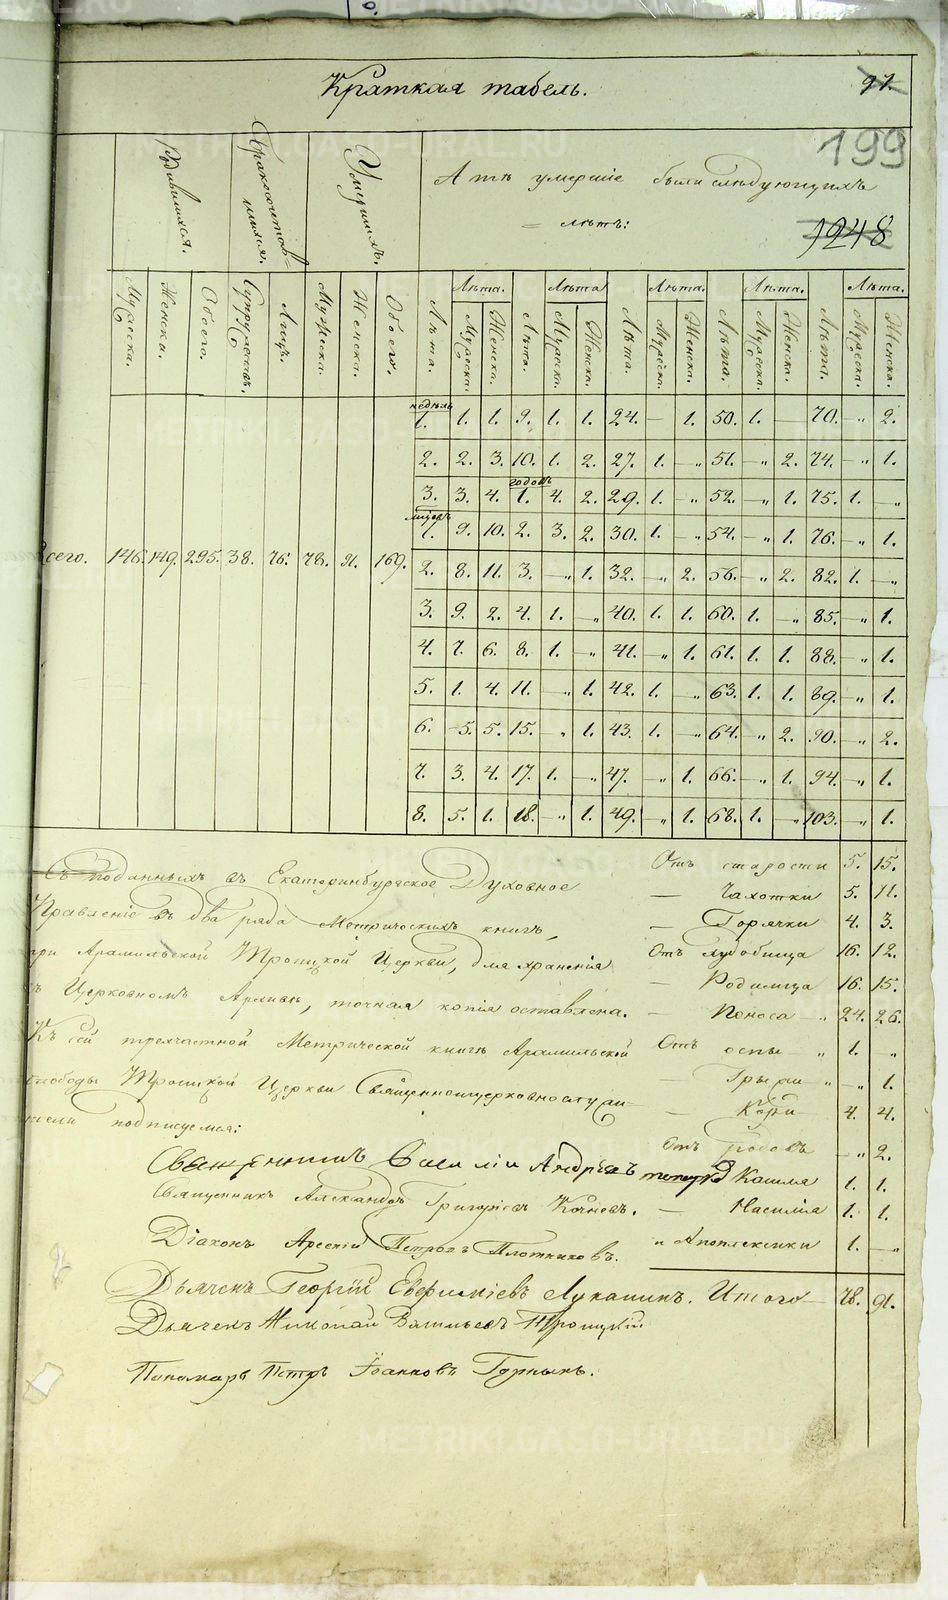 Краткая табель.
97.
199
1248
Родившихся.
Бракосочетав=
шихся.
Умершихъ.
А тѣ умершіе были слѣдующихъ
= лѣтъ:
Мужеска. Женска. Обоего. Супружествъ. Лицъ. Мужеска. Женска. Обоего.
Лѣта. Лѣта. Лѣта. Лѣта. Лѣта.
Лѣта. Мужеска. Женска. Лѣта. Мужеска. Женска. Лѣта. Мужеска. Женска. Лѣта. Мужеска. Женска. Лѣта. Мужеска. Женска.
недѣль
1. 1. 1. 9. 1. 1. 24. — 1. 50. 1. — 70. — „ 2.
2. 2. 3. 10. 1. 2. 27. 1. — „ 51. — „ 2. 74. — „ 1.
годовъ
3. 3. 4. 1. 4. 2. 29. 1. — „ 52. — „ 1. 75. 1. — „
1. 9. 10. 2. 3. 2. 30. 1. — „ 54. — „ 1. 76. — „ 1.
всего. 146. 149. 295. 38. 76. 78. 91. 169.
2. 8. 11. 3. — „ 1. 32. — „ 2. 56. — „ 2. 82. 1. — „
3. 9. 2. 4. 1. — „ 40. 1. 1. 60. 1. — „ 85. — „ 1.
4. 7. 6. 8. 1. — „ 41. — „ 1. 61. 1. 1. 88. — „ 1.
5. 1. 4. 11. — „ 1. 42. 1. — „ 63. 1. 1. 89. — „ 1.
6. 5. 5. 15. — „ 1. 43. 1. — „ 64. — „ 2. 90. — „ 2.
7. 3. 4. 17. 1. — „ 47. — „ 1. 66. — „ 1. 94. — „ 1.
8. 5. 1. 18. — „ 1. 49. — „ 1. 68. 1. — „ 103. — „ 1.
Съ поданныхъ въ Екатеринбургское Духовное
Правленіе въ два ряда Метрическихъ книгъ,
при Арамильской Троицкой Церкви, для храненія
въ Церковномъ Архивѣ, точная копія оставлена.
Къ сей трехчастной Метрической книгѣ Арамильской
слободы Троицкой Церкви Священноцерковнослужи-
тели подписуемся:
Священникъ Василій Андреевъ
Священникъ Александръ Григорьевъ Кочневъ.
Діаконъ Арсеній Петровъ Плотниковъ.
Дьячекъ Георгій Евфиміевъ Луканинъ.
Дьячекъ Николай Васильевъ Троицкій
Пономарь Петръ Іоанновъ Горныхъ.
Отъ старости 5. 15.
— Чахотки 5. 11.
— Горячки 4. 3.
Отъ худобища 16. 12.
— Родимца 16. 15.
— Поноса — „ 24. 26.
Отъ оспы — „ 1. „
Грыжи „ „ 1.
— Кори 4. 4.
Отъ родовъ — „ 2.
Кашля 1. 1.
— Насилія 1. 1.
„ Апоплексики 1. — „
Итого 78. 91.
METRIKI.GASO-URAL.RU